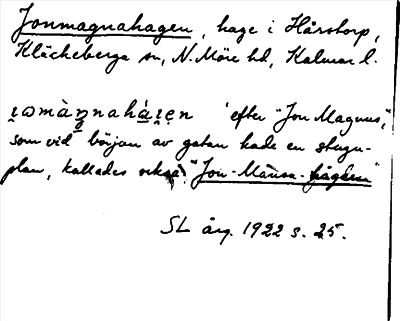 Jonmagnahagen, hage i Hårstorp,
Kläckeberga sn, N. Möre hd, Kalmar l.
efter "Jon Magnus",
som vid början av gatan hade en stugu-
plan, kallades också "Jon-Månsa-hagen"
SL årg. 1922 s. 25.